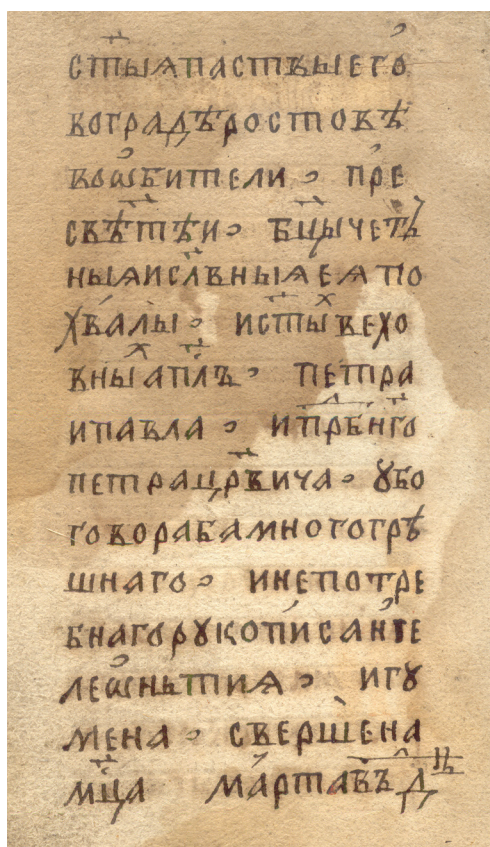 стыꙗпаствыего҆
воградѣростовѣ
воѡбители · пре
свѣтѣи · бцычетъ
ныꙗиславныꙗеѧпо
хвалы · истыⷯвехо
вныⷯаплъ · петра
ипавла · ипрⷣбнго
петрацрвича · ꙋбо
говорабамногогрѣ
шнаго · инепотре
бнагорукописанїе
леѡнътиѧ · игу
мена · свершена
мцамартавъ д҃ нь